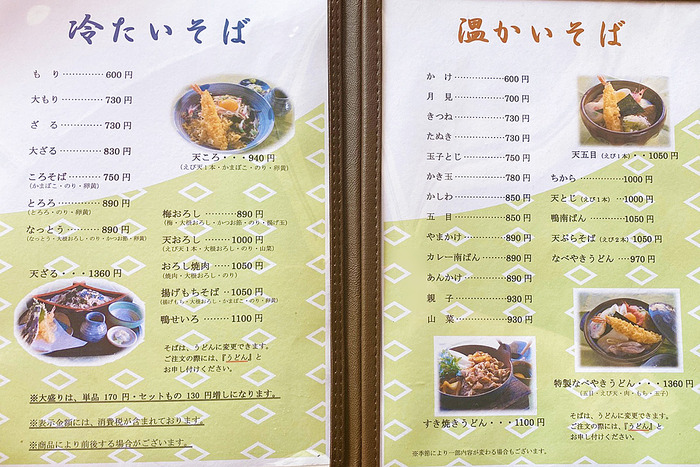 冷たいそば
もり…………600円
大もり…………730円
ざる…………730円
大ざる…………830円
ころそば………750円
(かまぼこ・のり・卵黄)
とろろ…………890円
(とろろ・のり・卵黄)
なっとう………890円
(なっとう・大根おろし・のり・かつお節・卵黄)
天ざる・・・1360円
天ころ・・・940円
(えび天1本・かまぼこ・のり・卵黄)
梅おろし………890円
(梅・大根おろし・かつお節・のり・揚げ玉)
天おろし………1000円
(えび天1本・大根おろし・のり・山菜)
おろし焼肉……1050円
(焼肉・大根おろし・のり)
揚げもちそば…1050円
(揚げもち・大根おろし・かまぼこ・のり・卵黄)
鴨せいろ………1100円
そばは、うどんに変更できます。
ご注文の際には、『うどん』と
お申し付けください。
※大盛りは、単品170円・セットもの130円増しになります。
※表示金額には、消費税が含まれております。
※商品により前後する場合がございます。
温かいそば
かけ……………600円
月見……………700円
きつね…………730円
たぬき…………730円
玉子とじ………750円
かき玉…………780円
かしわ…………850円
五目……………850円
やまかけ………890円
カレー南ばん…890円
あんかけ………890円
親子……………930円
山菜……………930円
すき焼きうどん・・・1100円
天五目(えび1本)・・1050円
ちから…………1000円
天とじ(えび1本)…1000円
鴨南ばん………1050円
天ぷらそば(えび2本)1050円
なべやきうどん……970円
特製なべやきうどん・・・1360円
(五目・えび天・肉・もち・玉子)
そばは、うどんに変更できます。
ご注文の際には、『うどん』と
お申し付けください。
※季節により一部内容が変わる場合もございます。